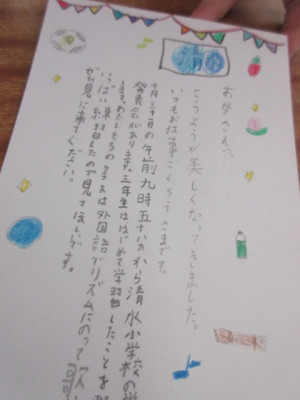 お母さんへ
こうようが美しくなってきました。
いつもお仕事ごくろうさまです。
十月三十一日の午前九時五十分から清水小学校の学
発表会があります。三年生は、はじめて学習したことを
ます。わたしたちのクラスは外国語でリズムにのって
いっぱい練習したので見てほしいです。
ぜひ見に来てください。